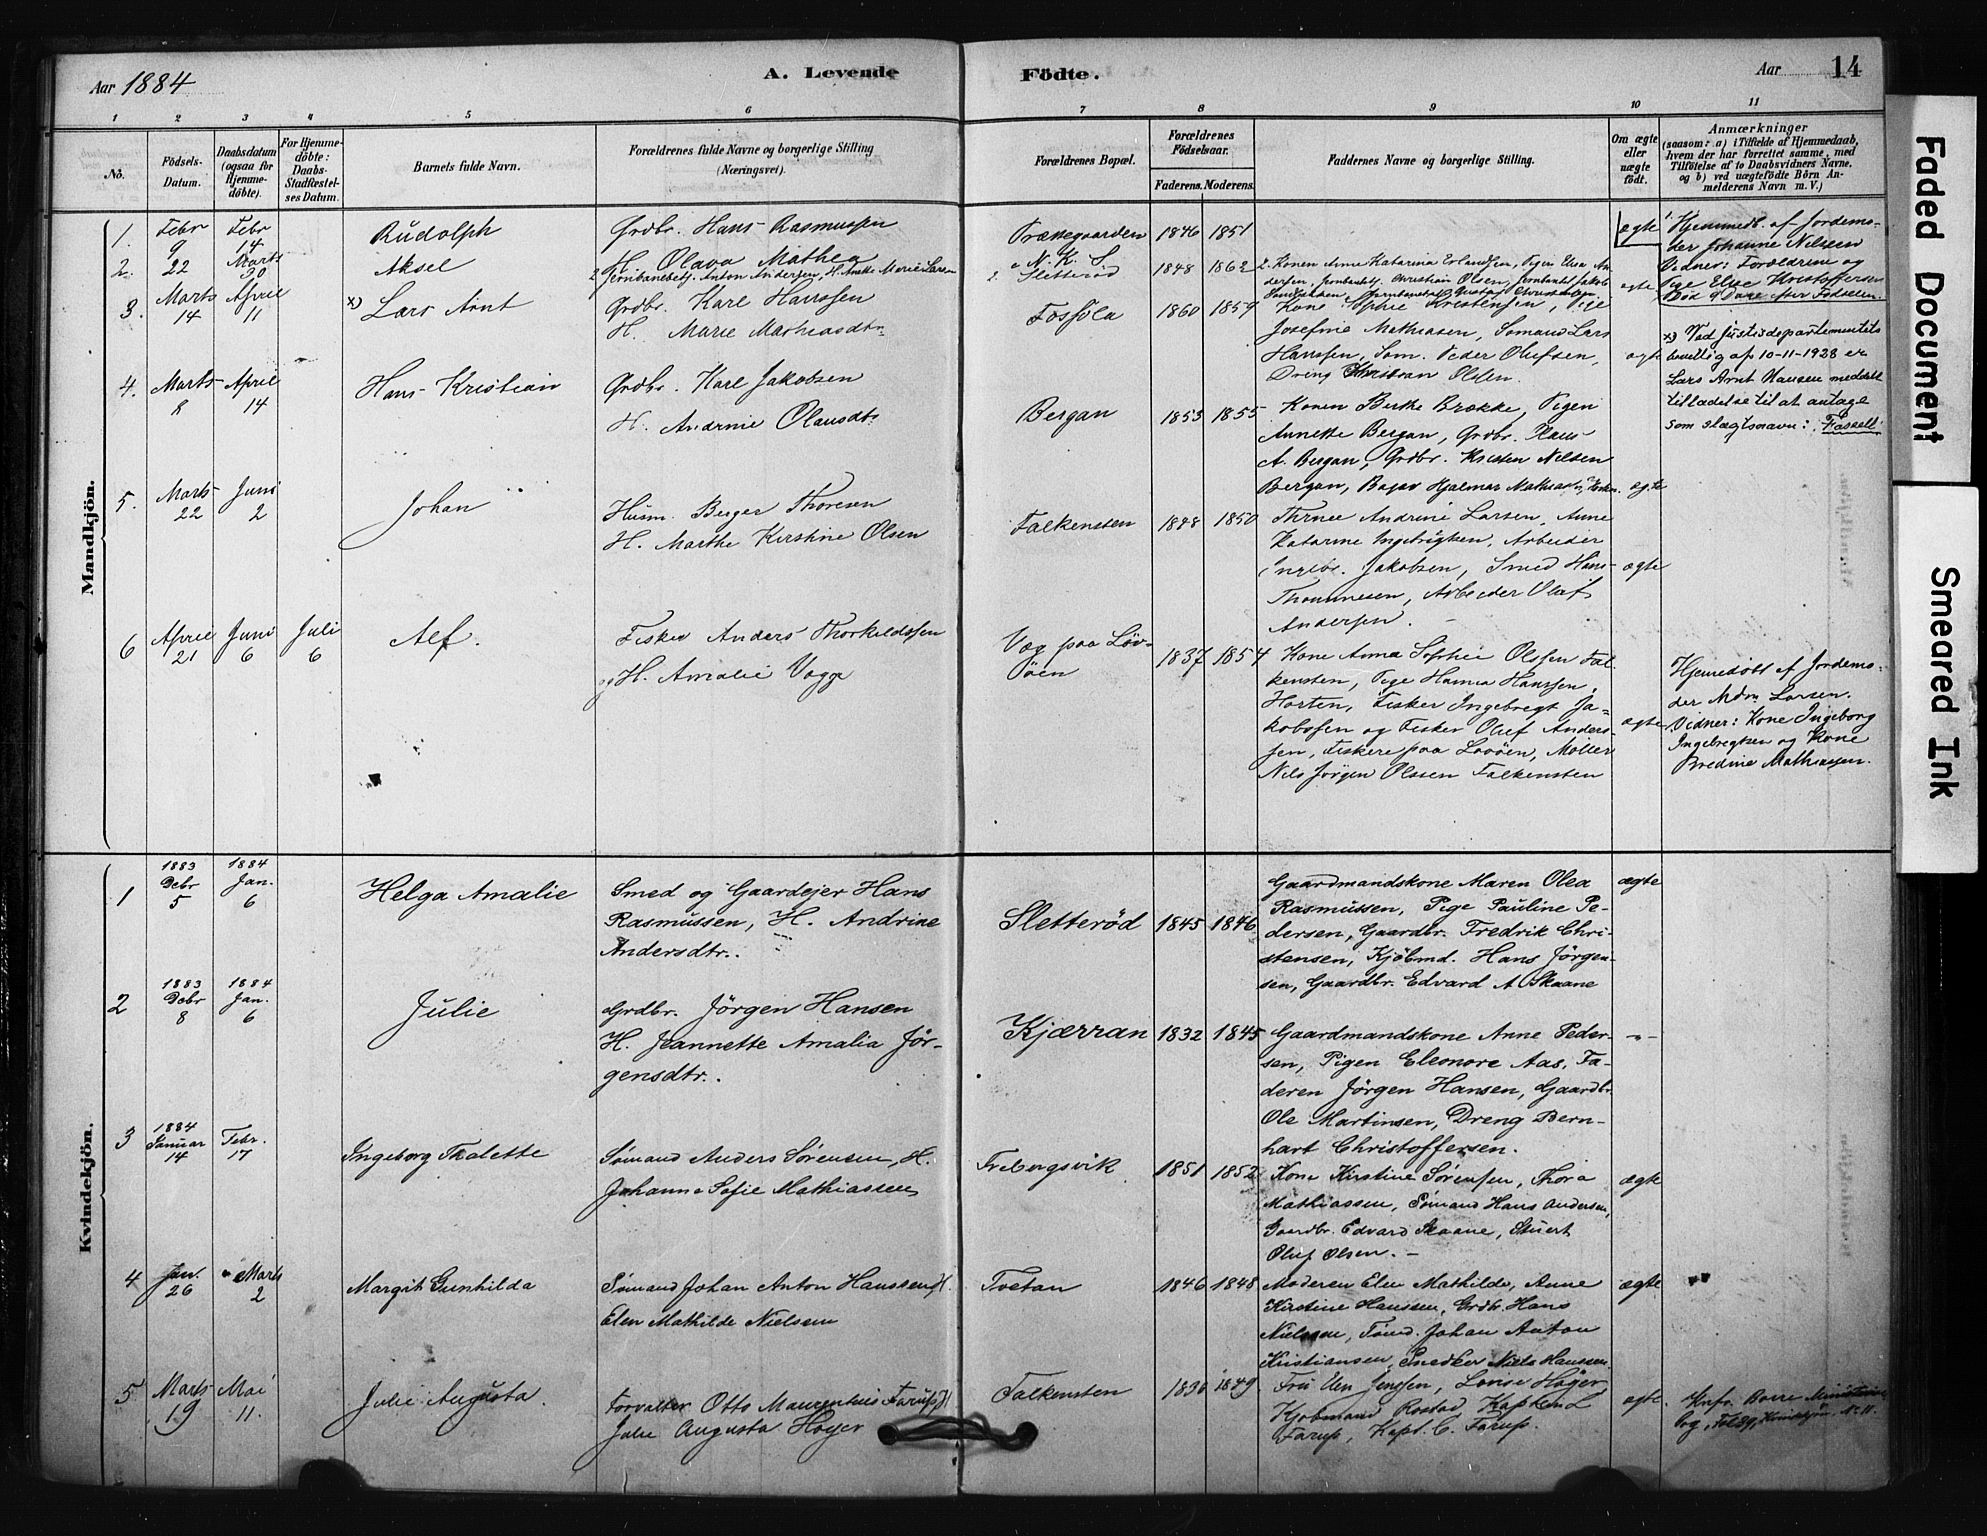 Aar 1884
A. Levende
Födte.
Aar
14
1 2 3 4 5 6 7 8 9 10 11
No.
Födsels-
Datum.
Daabsdatum
(ogsaa for
Hjemme-
döbte).
For Hjemme-
döbte:
Daabs-
Stadfæstel-
ses Datum.
Barnets fulde Navn.
Forældrenes fulde Navne og borgerlige Stilling
(Næringsvei).
Forældrenes Bopæl.
Forældrenes
Födselsaar.
Faderens. Moderens.
Faddernes Navne og borgerlige Stilling.
Om ægte
eller
uægte
födt.
Anmærkninger
(saasom: a) i Tilfælde af Hjemmedaab,
hvem der har forrettet samme, med
Tilföielse af to Daabsvidners Navne,
og b) ved uægtefödte Börn An-
melderens Navn m. V.)
Mandkjön.
1. Febr 9 Febr 14 Rudolph
Grdbr. Hans Rasmussen
H. Olava Mathea
Prestegaarden
1846 1851
ægte
Hjemmedb. af Jordemo-
der Johanne Nilsen
Vidner: Forældrene og
Pige Elise Kristoffersen
Död 9 Dage efter Födselen.
2. 22 Marts 30 Aksel
Anton Andersen, H. Anette Marie Larsen
Sletteröd
1848 1862
2. Konen Anne Katarina Erlandsen, Pigen Elise An-
dersen, Christian Olsen, Jakob
ægte
3. Marts 14 April 11 x) Lars Arnt
Grdbr. Karl Hanssen
H. Marie Mathiasdtr
1860 1857
Kone Sophie Kristensen, Pige
Josefine Mathiasen, Sömand Lars
Hanssen, Söm. Peder Olufsen,
Dreng Christian Olsen.
ægte
x) Ved Justisdepartementets
bevillig af 10-11-1928 er
Lars Arnt Hansen meddelt
tilladelse til at antage
som slægtsnavn: Fossell
4. Marts 8 April 14 Hans Kristian
Grdbr. Karl Jakobsen
H. Andrine Olausdtr
Bergan
1853 1855
Konen Berthe Brække, Pigen
Annette Bergan, Grdbr. Klaus
A. Bergan, Grdbr. Kristen Nilsen
Bergan, Hjalmar
ægte
5. Marts 22 Juni 2 Johan
Husm. Berger Thoresen
H. Marthe Kirstine Olsen
Falkensten
1848 1850
Andrine Larsen, Anne
Katarine Ingebrigtsen, Arbeider
Ingebr. Jakobsen, Smed Hans
Thommesen, Arbeider Oluf
Andersen.
ægte
6 April 21 Juni 6 Juli 6 Alf.
Fisker Anders Thorkildssen
og H. Amalie Vagga
Væg paa Löv-
öen
1837 1854
Kone Anna Sophie Olssen Fal-
kensten, Pige Hanna Hanssen,
Horten, Fisker Ingebregt Ja-
kobssen og Fisker Oluf Anders-
sen, Fiskere paa Lövöen, Möller
Nils Jörgen Olssen Falkensten
ægte
Hjemedöbt af Jordemo-
der Mdm Larsen.
Vidner: Kone Ingeborg
Ingebregtsen og Kone
Bredine Mathiassen.
Kvindekjön.
1 1883 Debr 5 1884 Jan. 6 Helga Amalie
Smed og Gaardejer Hans
Rasmussen, H. Andrine
Andersdtr.
Sletteröd
1845 1846
Gaardmandskone Maren Olea
Rasmussen, Pige Pauline Pe-
dersen, Gaardbr. Fredrik Chri-
stensen, Kjöbmd. Hans Jörgen-
sen, Gaardbr. Edvard A. Skaane
ægte
2 1883 Debr 8 1884 Jan. 6 Julie
Grdbr. Jörgen Hansen
H. Jeannette Amalia Jör-
gensdtr.
Kjærran
1832 1845
Gaardmandskone Anne Peder-
sen, Pigen Eleonore Aas, Fa-
deren Jörgen Hansen, Gaardbr.
Ole Martinsen, Dreng Bern-
hart Christoffersen.
-"-
3 1884 Januar 14 Febr. 17 Ingeborg Thalette
Sömand Anders Sörensen, H.
Johanne Sofie Mathiassen
Frebergsvik
1851 1852
Kone Kirstine Sörensen, Thora
Mathiassen, Sömand Hans Andersen,
Gaardbr. Edvard Skaane, Stuert
Oluf Olsen. -
ægte
4 Jan. 26 Marts 2 Margit Gunhilda
Sömand Johan Anton Hanssen, H.
Elen Mathilde Nielssen
Tvetan
1846 1848
Moderen Elen Mathilde, Anne
Kirstine Hanssen, Grdb. Hans
Nielssen, Tömd. Johan Anton
Kristiansen, Snedker Niels Hanssen.
ægte
5 Marts 19 Mai 11. Julie Augusta
Forvalter Otto Maurentius Farup, H.
Julie Augusta Höyer
Falkensten
1836 1849
Fru Elen Jenssen, Lovise Höyer
Kjöbmand Rostad, Kaptein L
Farup, Kapt. C. Farup.
ægte.
Knfr. Borre
Faded Document
Smeared Ink